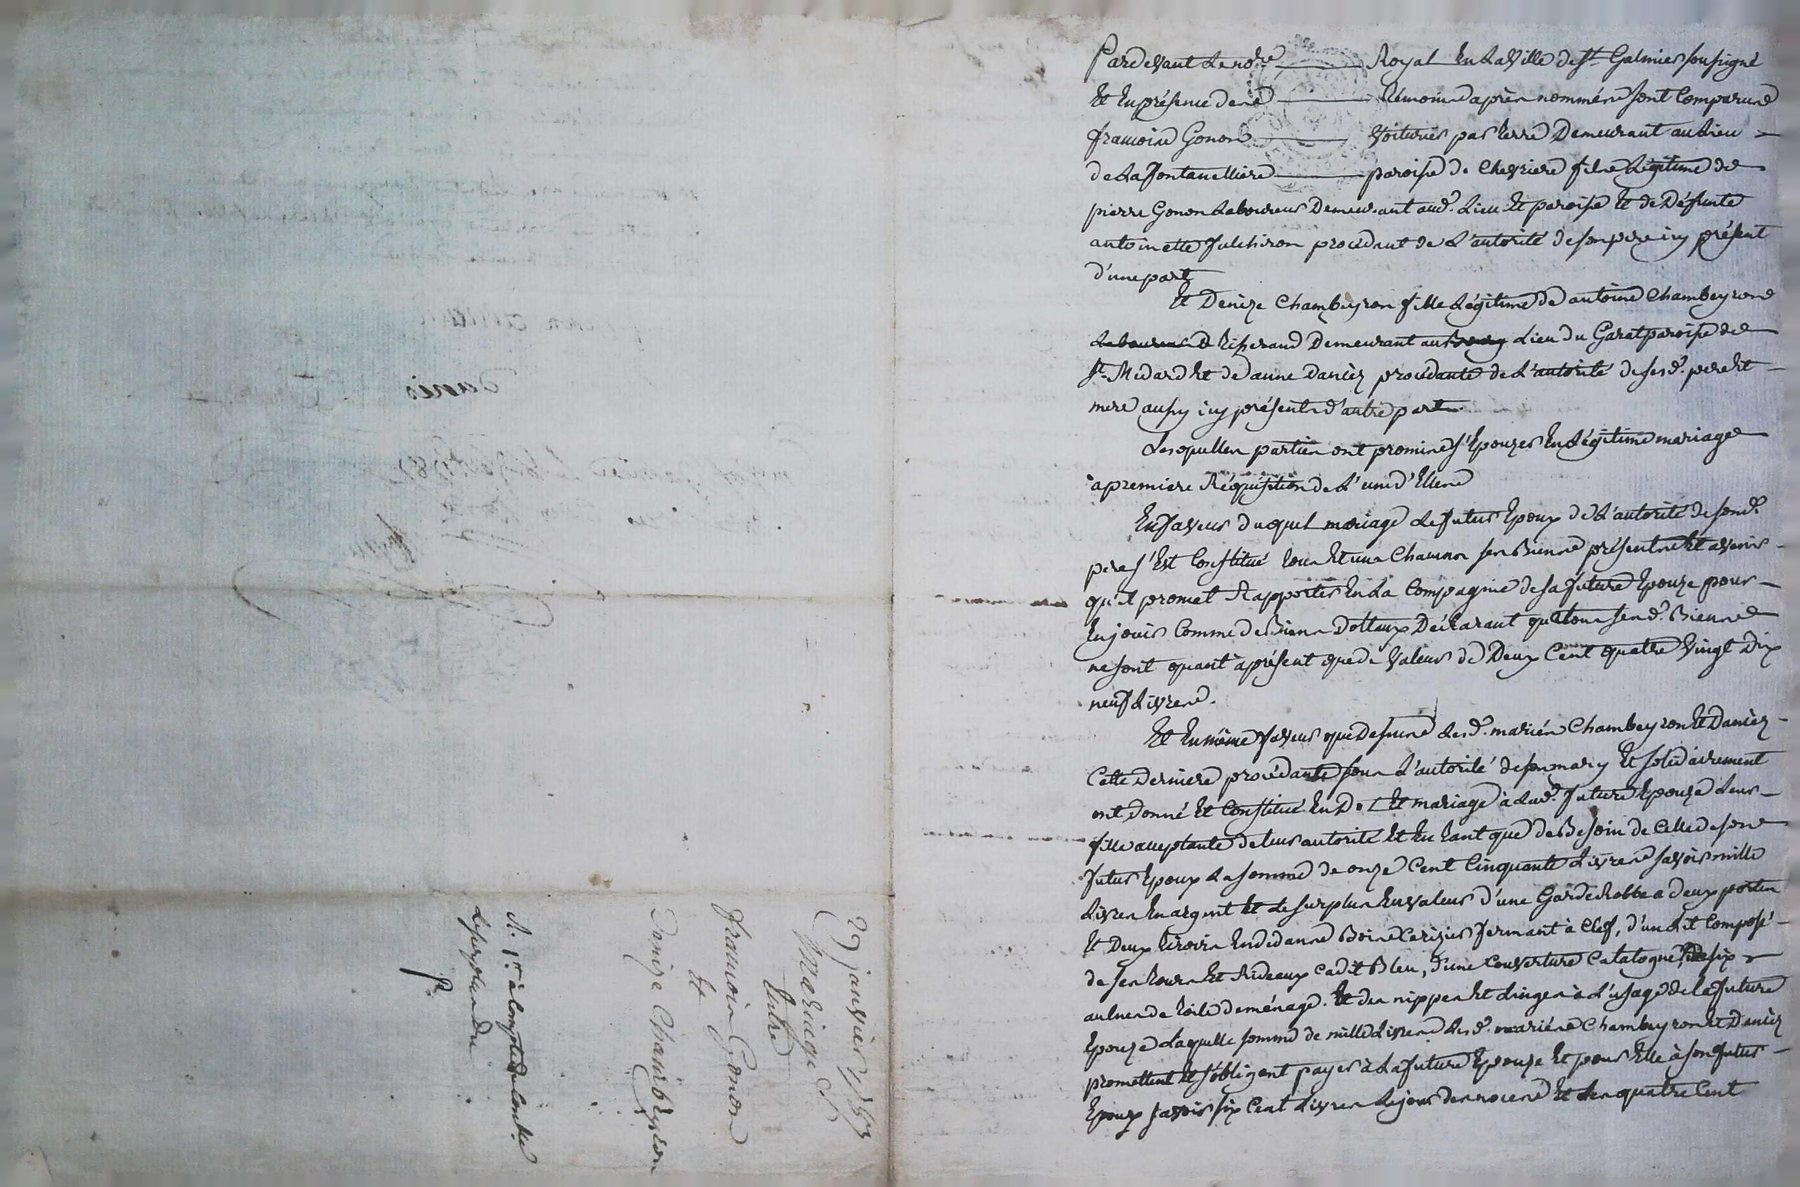 Pardevant le no.re Royal En la Ville de St. Galmier soussigné
Et En présence des témoins après nommés sont Comparus
françois Gonon Voiturier par terre Demeurant au lieu
de La fontanelliere paroisse de Chevriere fils Légitime de
pierre Gonon Laboureur Demeurant aud. Lieu Et paroisse Et de Défunte
antoinette fulchiron procédant de L'autorité de son pere icy présent
d'une part
Et Denize Chambeyron fille Légitime de antoine Chambeyron
Laboureur & tisserand Demeurant au bourg Lieu du Garat paroisse de
St. Médard Et de anne Daniez procédante de L'autorité de sesd. pere Et
mere aussy icy présents d'autre part
Lesquelles parties ont promis s'Epouzer En Légitime mariage
a premiere Réquisition de L'une d'Elles
En faveur duquel mariage Le futur Epoux de L'autorité de sond.
pere s'Est Constitué tous Et un Chacun ses Biens présents Et avenir
qu'il promet Rapporter En La Compagnie de sa future Epouze pour
En jouir Comme de Biens Dottaux Déclarant que tous sesd. Biens
ne sont quant à présent que de Valeur de Deux Cent quatre Vingt Dix
neuf Livres.
Et En même faveur que Dessus Lesd. mariés Chambeyron Et Daniez
Cette Derniere procédante sous L'autorité de son mary Et solidairement
ont donné Et Constitué En Dot Et mariage à Lad. future Epouze Leur
fille acceptante de leur autorité Et En tant que de Besoin de Celle de son
futur Epoux La somme de onze Cent Cinquante Livres savoir mille
Livres En argent Et Le surplus En valeur d'une Garderobbe a deux portes
Et Deux tiroirs En dedans Bois Cerizier fermant à Clef, d'un Lit Composé
de ses tours Et Rideaux Cadit Bleu, d'une Couverture Catalogne, de six
aulnes de toile de ménage. Et des nippes Et Linges à L'usage de la future
Epouze Laquelle somme de mille Livres Lesd. mariés Chambeyron Et Daniez
promettent Et s'obligent payer à La future Epouze Et pour Elle à son futur
Epoux savoir six Cent Livres Le jour des noces Et Les quatre Cent
29 janvier
Mariage
Entre
françois Gonon
Et
Denize Chambeyron
Le surplus du